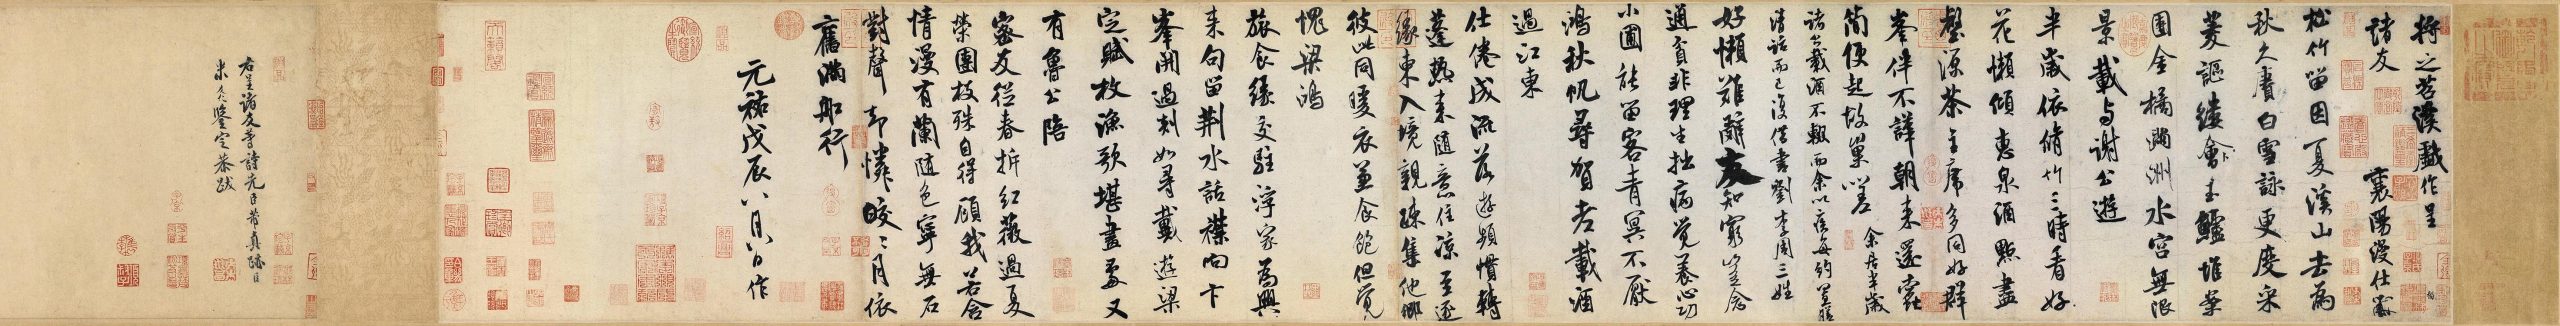 將之苕溪戲作呈
諸友　襄陽漫仕黻
松竹留因夏溪山去為
秋久賡白雪詠更度采
菱謳縷會玉鱸堆案
團金橘滿洲水宮無限
景載與謝公遊
半歲依脩竹三時看好
花懶傾惠泉酒點盡
壑源茶主席多同好群
峯伴不譁朝來還蠹
簡便起故巢嗟余居半歲
諸公載酒不輟而余以疾每約置膳
清話而已復借書劉李周三姓
好懶難辭友知窮豈念
通貧非理生拙病覺養心功
小圃能留客青冥不厭
鴻秋帆尋賀老載酒
過江東
仕倦成流落遊頻慣轉
蓬熱來隨意住涼至逐
緣東入境親疎集他鄉
彼此同暖衣兼食飽但覺
愧梁鴻
旅食緣交駐浮家為興
來句留荆水話襟向卞
峯開過剡如尋戴遊梁
定賦枚漁歌堪畫處又
有魯公陪
密友從春拆紅薇過夏
榮團枝殊自得顧我若含
情漫有蘭隨色寧無石
對聲却憐皎皎月依
舊滿船行
元祐戊辰八月八日作
右呈諸友等詩先臣芾真跡臣
米友仁鑒定恭跋